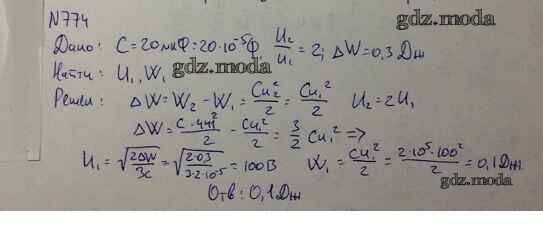 N774 gdz.moda
Дано: C=20мкФ=20·10⁻⁵Ф U₂/U₁=2; ΔW=0,3 Дж
Найти: U₁, W₁ gdz.moda
Решен: ΔW=W₂-W₁=CU₂²/2=CU₁²/2 U₂=2U₁
ΔW=C·4U₁²/2-CU₁²/2=3/2 CU₁² =>
U₁=√(2ΔW/3C)=√(2·0,3/3·2·10⁻⁵)=100В W₁=CU₁²/2=2·10⁵·100²/2=0,1Дж
gdz.moda
Отв: 0,1Дж